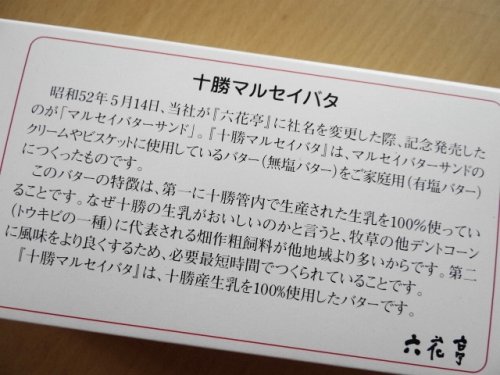 十勝マルセイバタ
昭和52年5月14日、当社が『六花亭』に社名を変更した際、記念発売した
のが「マルセイバターサンド」。『十勝マルセイバタ』は、マルセイバターサンドの
クリームやビスケットに使用しているバター(無塩バター)をご家庭用(有塩バター)
につくったものです。
このバターの特徴は、第一に十勝管内で生産された生乳を100%使ってい
ることです。なぜ十勝の生乳がおいしいのかと言うと、牧草の他デントコーン
(トウキビの一種)に代表される畑作粗飼料が他地域より多いからです。第二
に風味をより良くするため、必要最短時間でつくられていることです。
『十勝マルセイバタ』は、十勝産生乳を100%使用したバターです。
六花亭